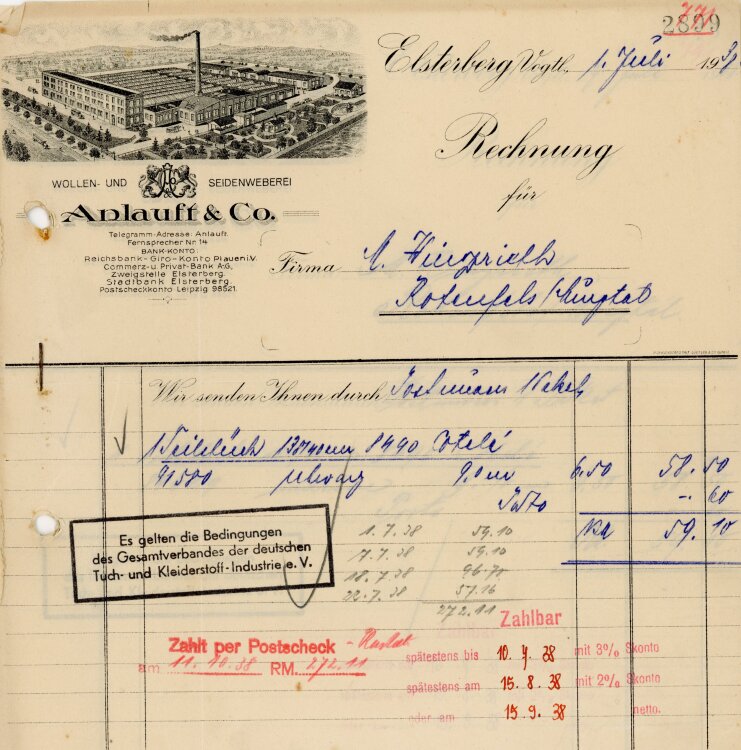 2899
771
Elsterberg Vogtl., 1. Juli 1938
Rechnung
für
WOLLEN- UND SEIDENWEBEREI
Anlauft & Co.
Telegramm-Adresse: Anlauft.
Fernsprecher Nr. 14
BANK-KONTO:
Reichsbank-Giro-Konto Plauen i.V.
Commerz-u. Privat-Bank A.G.,
Zweigstelle Elsterberg.
Stadtbank Elsterberg.
Postscheckkonto Leipzig 98521.
Firma A.
Rotenfels / Murgtal
Wir senden Ihnen durch Post 1 Paket
1 Teilstück 138/140 cm 8490
91580 schwarz 9.0 m 6.50 58.50
Porto -.60
RM 59.10
Es gelten die Bedingungen
des Gesamtverbandes der deutschen
Tuch- und Kleiderstoff-Industrie e. V.
1.7.38 59.10
7.7.38 59.10
18.7.38 96.75
22.7.38 57.16
272.11
Zahlt per Postscheck - Rastatt
am 11.10.38 RM 272.11
Zahlbar
spätestens bis 10.7.38 mit 3% Skonto
spätestens am 15.8.38 mit 2% Skonto
oder am 15.9.38 netto.